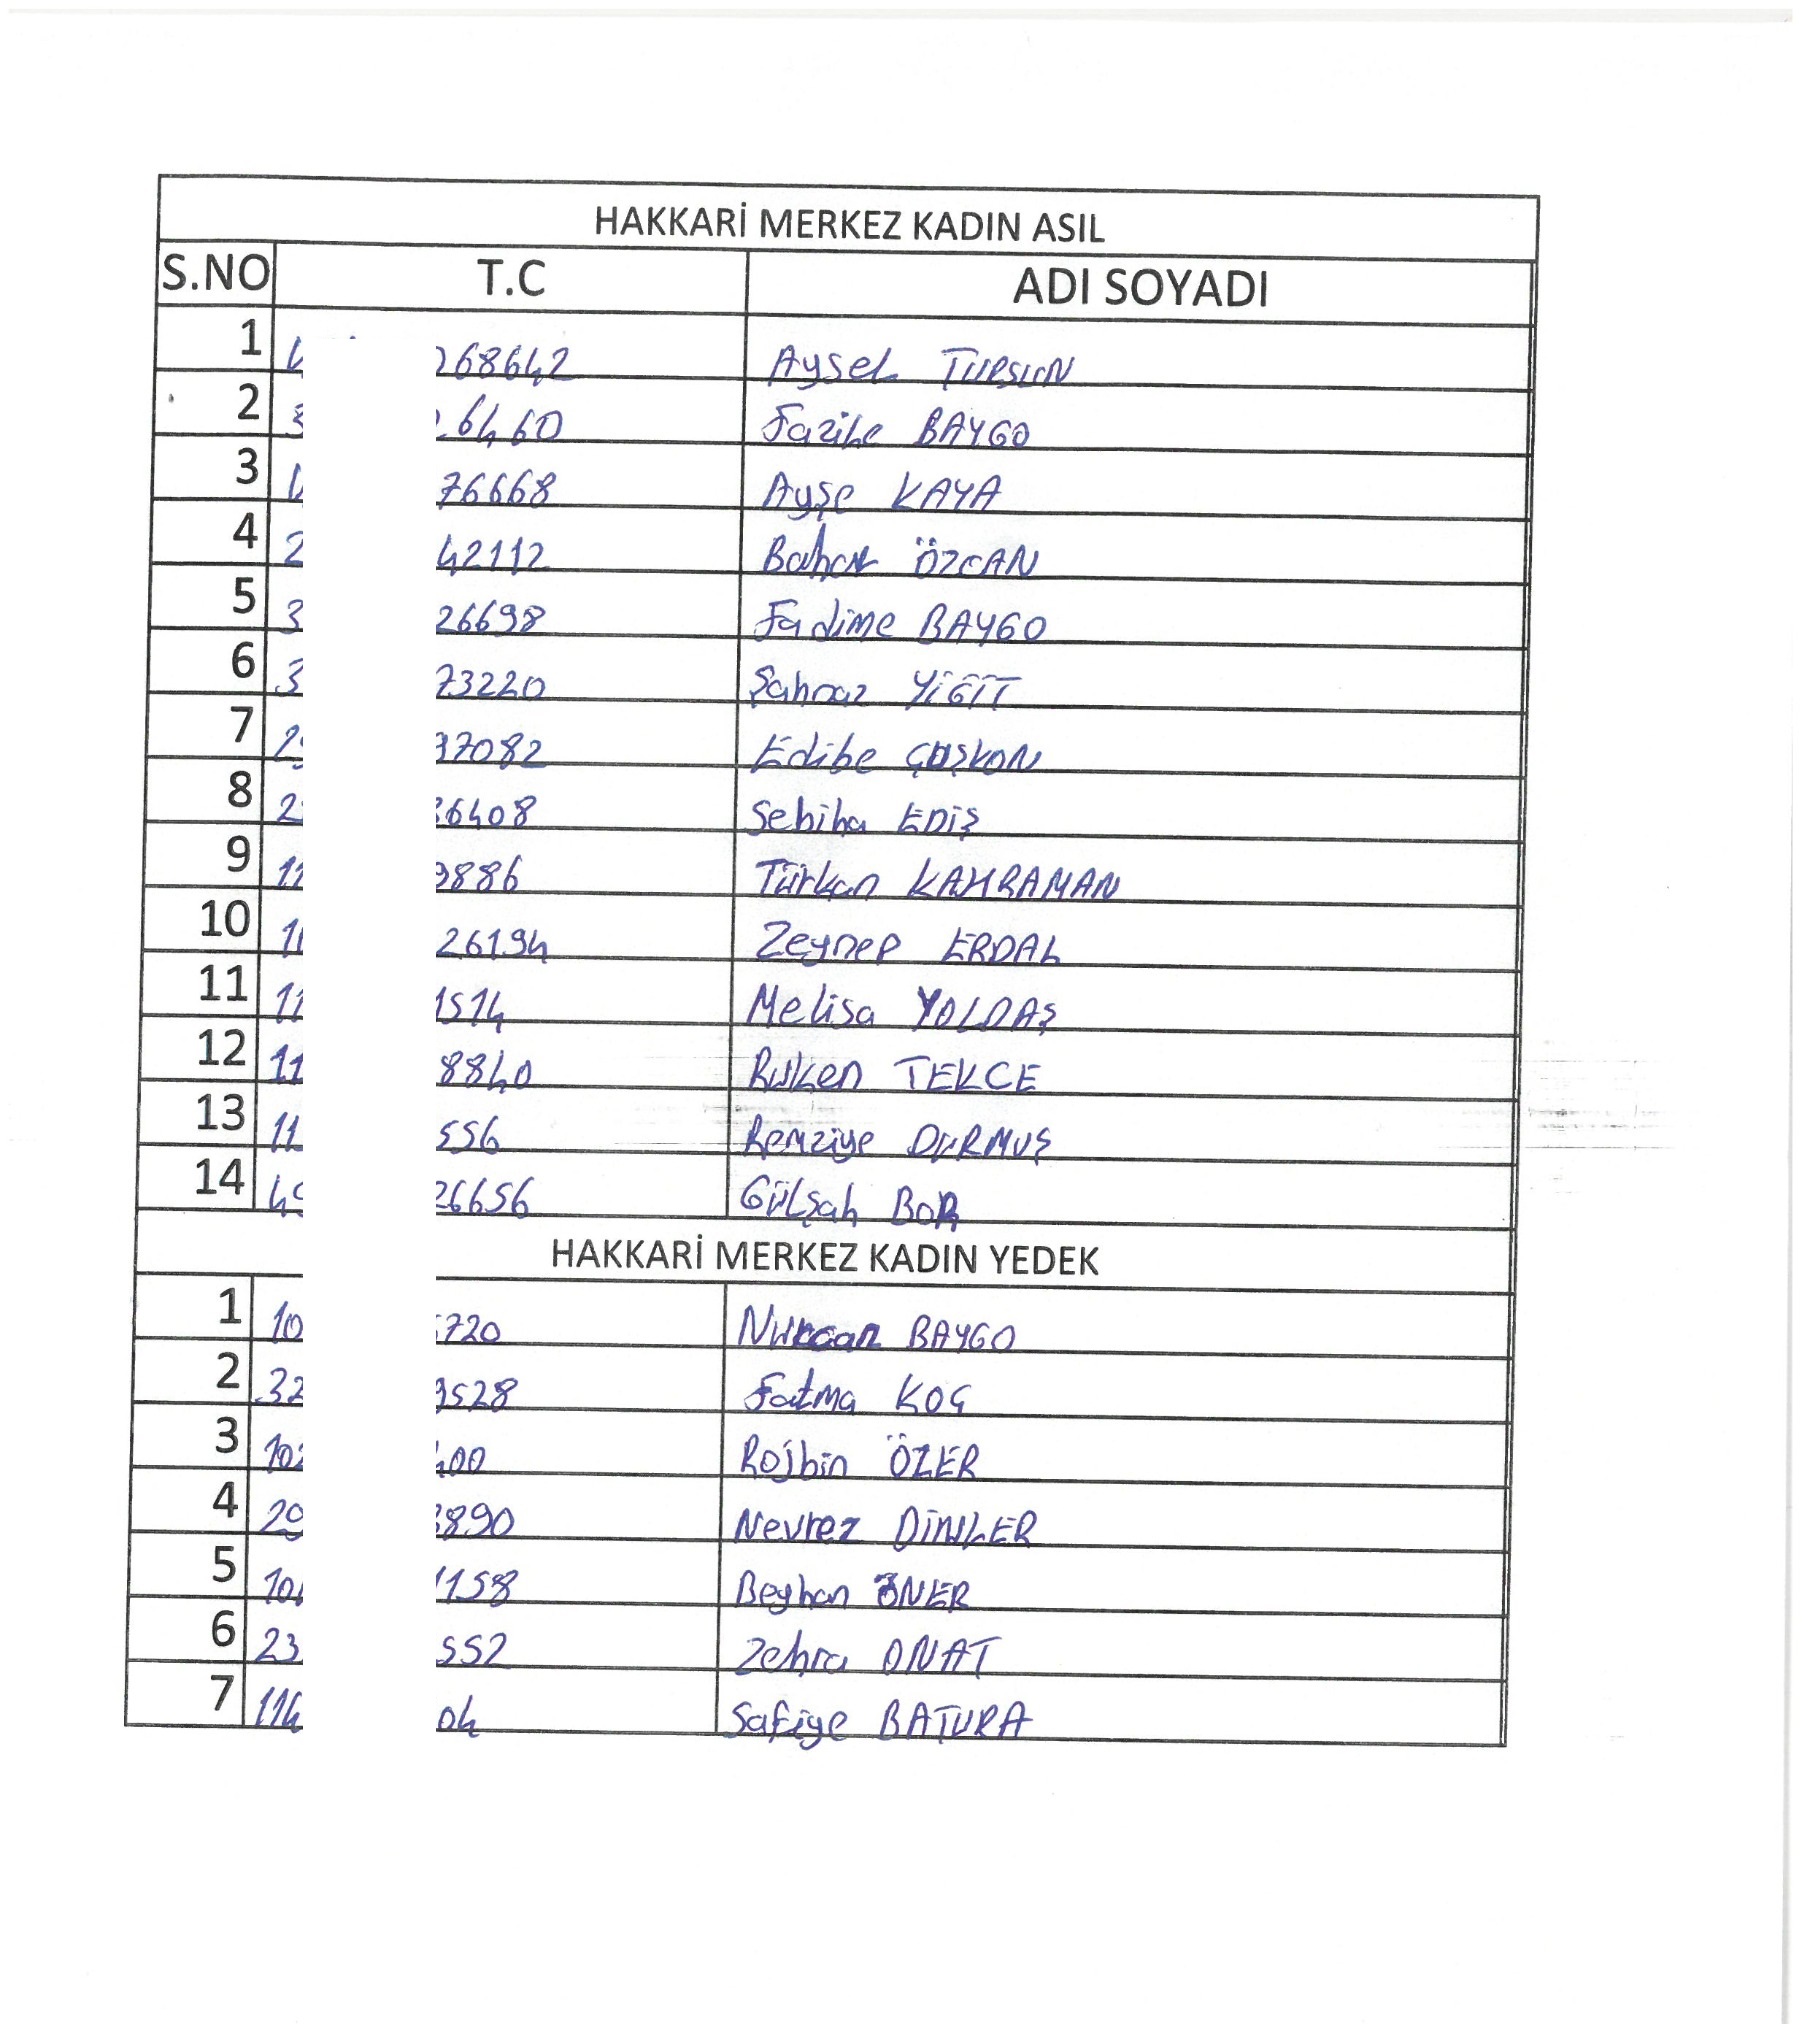 HAKKARİ MERKEZ KADIN ASIL
S.NO T.C ADI SOYADI
1 268642 Aysel TURSUN
2 26460 Fazile BAYGO
3 76668 Ayşe KAYA
4 2 42112 Bahar ÖZCAN
5 3 26698 Fadime BAYGO
6 3 73220 Şahnaz YİĞİT
7 2 37082 Edibe
8 2 36408 Sebiha EDİŞ
9 11 9886 Türkan KAHRAMAN
10 11 26194 Zeynep ERDAL
11 11 1514 Melisa YOLDAŞ
12 11 8840 Ruken TEKCE
13 11 556 Remziye DURMUŞ
14 49 26656 Gülşah BOR
HAKKARİ MERKEZ KADIN YEDEK
1 10 5720 Nurcan BAYGO
2 32 9528 Fatma KOÇ
3 102 400 Rojbin ÖZER
4 29 3890 Nevrez DİNLER
5 10 1158 Beyhan ÖNER
6 23 552 Zehra ONAT
7 114 04 Safiye BATURA